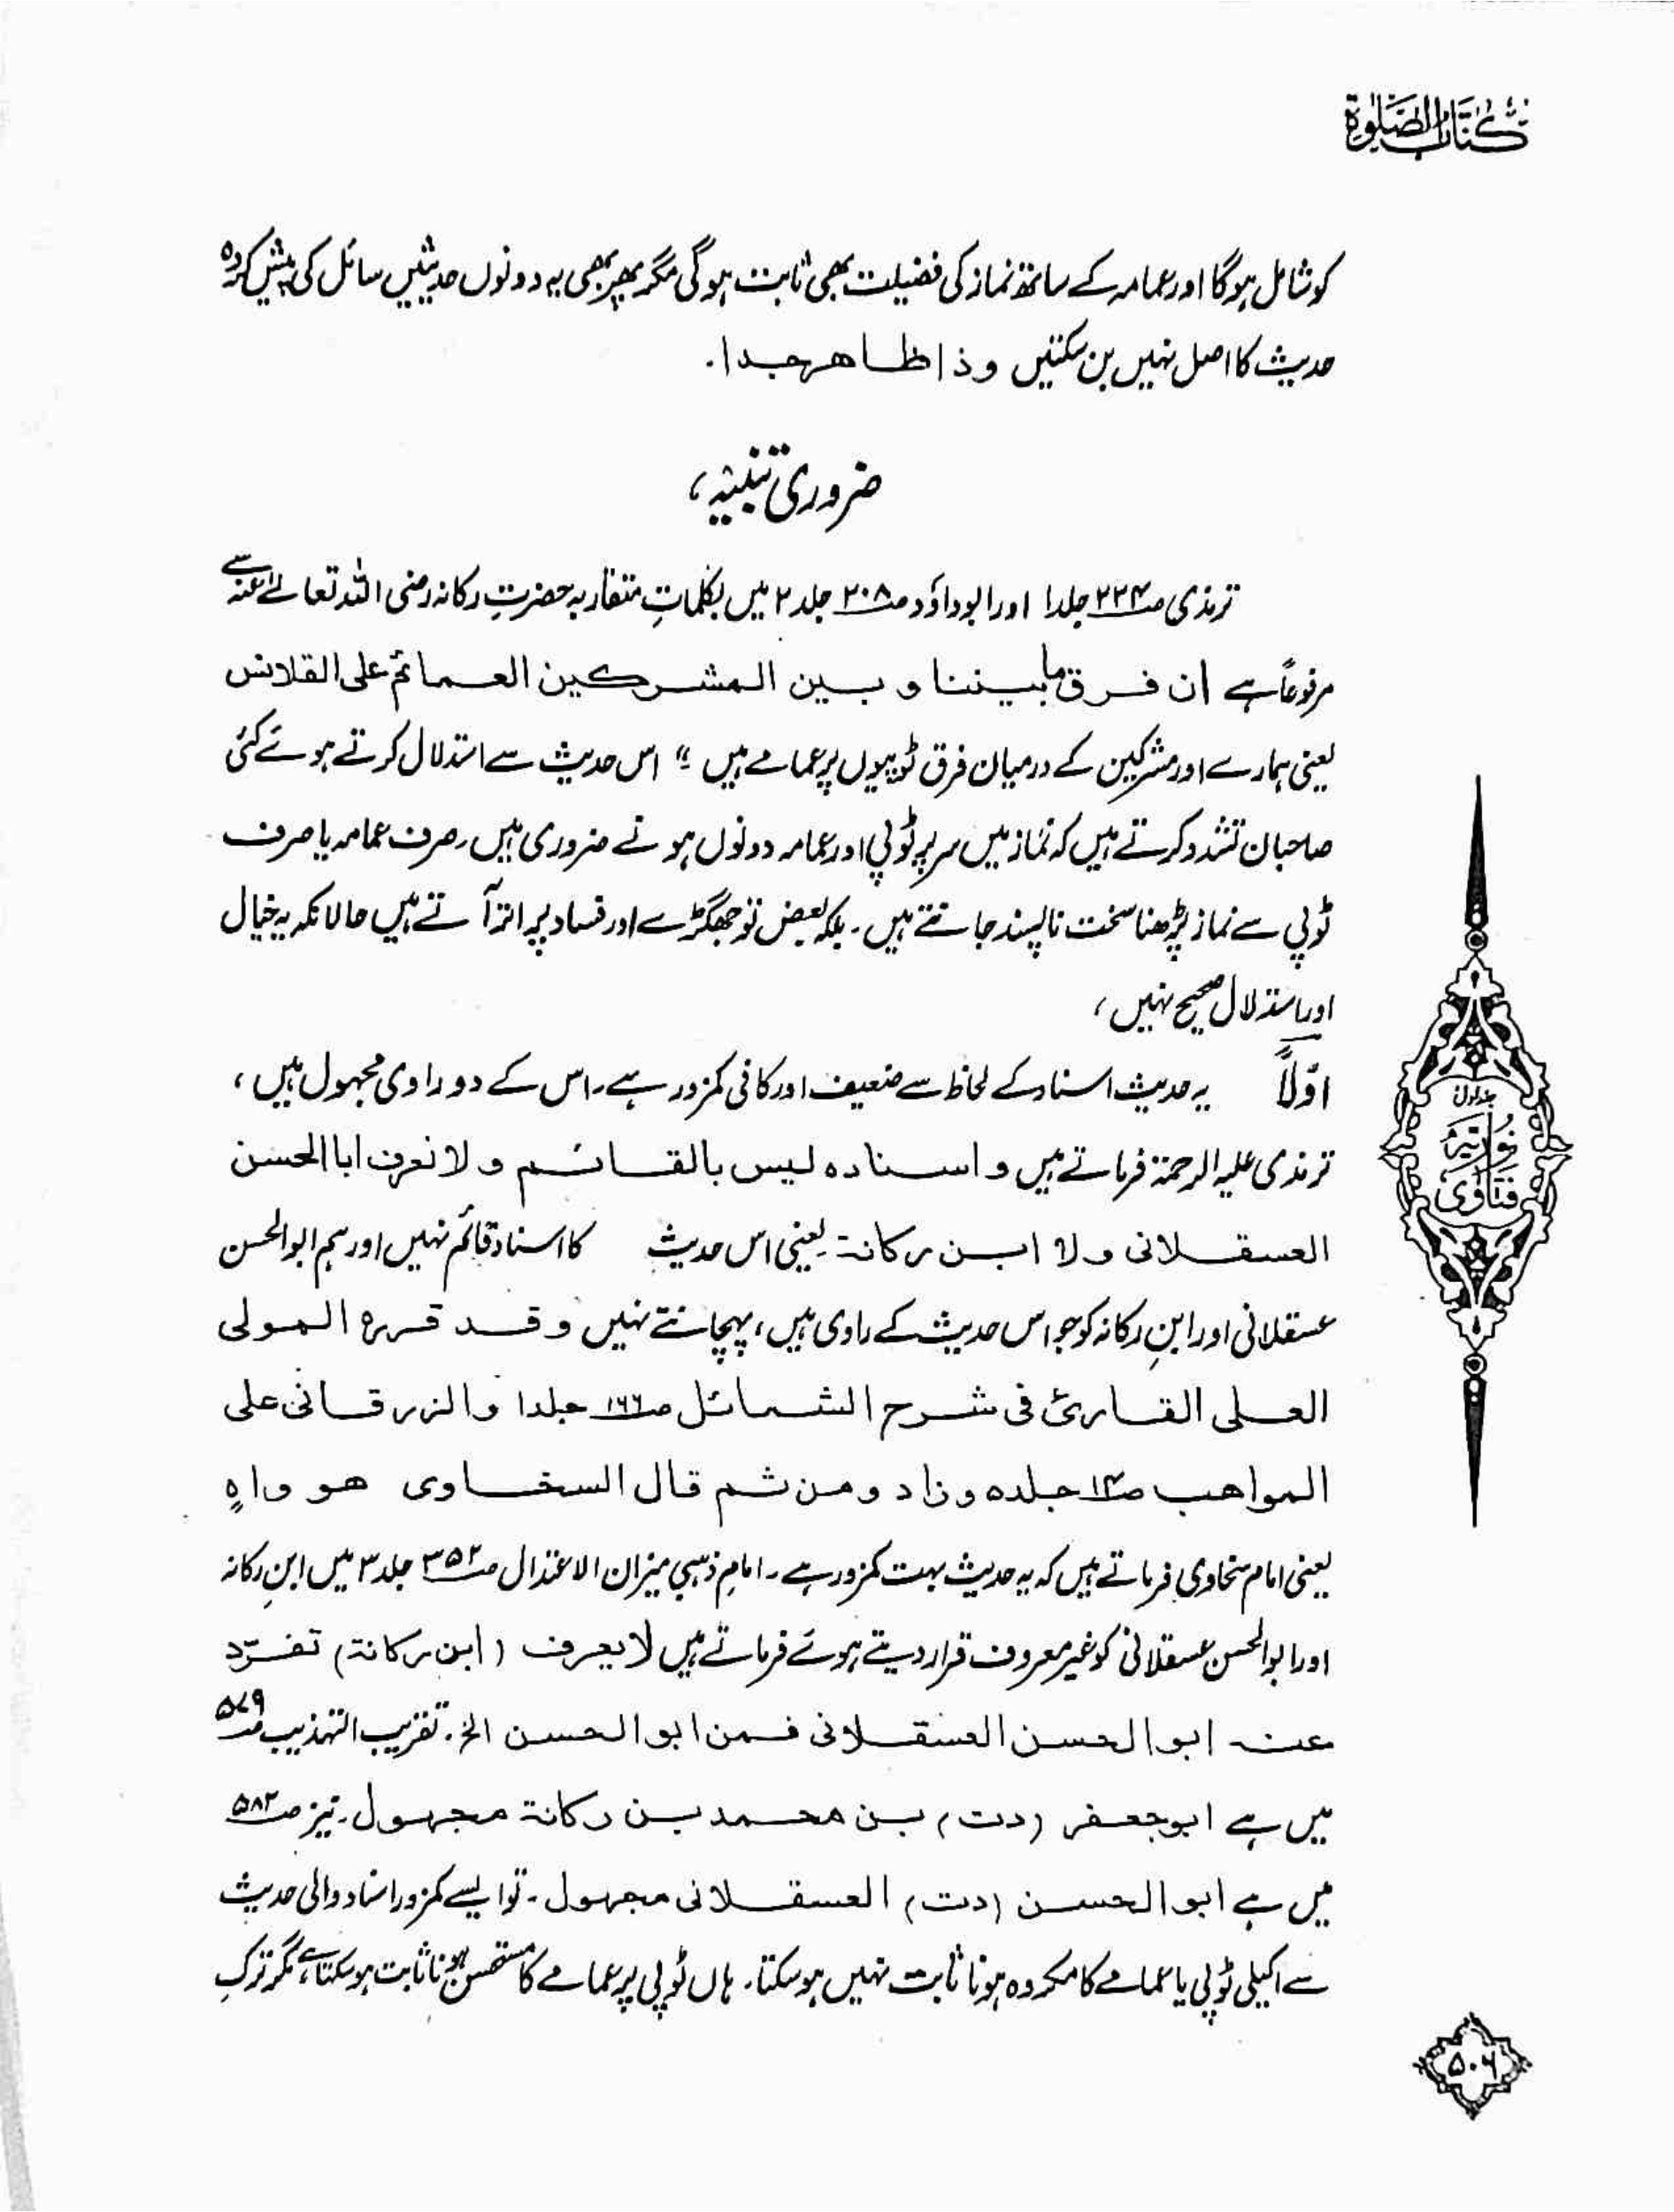 كتاب الصلوة
کو شامل ہوگا اور عمامہ کے ساتھ نماز کی فضیلت بھی ثابت ہوگی مگر پھر بھی یہ دونوں حدیثیں سائل کی پیش کردہ
حدیث کا اصل نہیں بن سکتیں وذا ظاھر جدا.
ضروری تنبیہ،
ترمذی صـ۲۲۴ جلد۱ اور ابوداؤد صـ۲۰۸ جلد ۲ میں بکلماتِ متقاربہ حضرتِ رکانہ رضی اللہ تعالےٰ عنہ سے
مرفوعاً ہے ان فرق ما بیننا و بین المشرکین العمائم علی القلانس
یعنی ہمارے اور مشرکین کے درمیان فرق ٹوپیوں پر عمامے ہیں ؛" اس حدیث سے استدلال کرتے ہوئے کئی
صاحبان تشدد کرتے ہیں کہ نماز میں سر پر ٹوپی اور عمامہ دونوں ہونے ضروری ہیں۔ صرف عمامہ یا صرف
ٹوپی سے نماز پڑھنا سخت ناپسند جانتے ہیں۔ بلکہ بعض تو جھگڑے اور فساد پر اتر آتے ہیں حالانکہ یہ خیال
اور استدلال صحیح نہیں،
اوّلاً یہ حدیث اسناد کے لحاظ سے ضعیف اور کافی کمزور ہے۔ اس کے دو راوی مجہول ہیں،
ترمذی علیہ الرحمۃ فرماتے ہیں و اسنادہ لیس بالقائم و لا نعرف ابا الحسن
العسقلانی ولا ابن رکانۃ یعنی اس حدیث کا اسناد قائم نہیں اور ہم ابوالحسن
عسقلانی اور ابنِ رکانہ کو جو اس حدیث کے راوی ہیں، پہچانتے نہیں وقد قررہ المولی
العلی القاریٔ فی شرح الشمائل صـ۱۶۶ جلد۱ والزرقانی علی
المواھب صـ۱۴ جلد۵ وزاد ومن ثم قال السخاوی ھو واہٍ
یعنی امام سخاوی فرماتے ہیں کہ یہ حدیث بہت کمزور ہے۔ امامِ ذہبی میزان الاعتدال صـ۳۵۲ جلد ۳ میں ابنِ رکانہ
اور ابوالحسن عسقلانی کو غیر معروف قرار دیتے ہوئے فرماتے ہیں لا یعرف (ابن رکانۃ) تفرّد
عنہ ابوالحسن العسقلانی فمن ابوالحسن الخ. تقریب التہذیب صـ۵۷۹
میں ہے ابوجعفر (دت) بن محمد بن رکانۃ مجھول۔ نیز صـ۵۸۲
میں ہے ابوالحسن (دت) العسقلانی مجھول۔ تو ایسے کمزور اسناد والی حدیث
سے اکیلی ٹوپی یا عمامے کا مکروہ ہونا ثابت نہیں ہو سکتا۔ ہاں ٹوپی پر عمامے کا مستحسن ہونا ثابت ہو سکتا ہے، مگر ترکِ
جلد اول
نوریہ
فتاوی
۵۰۶